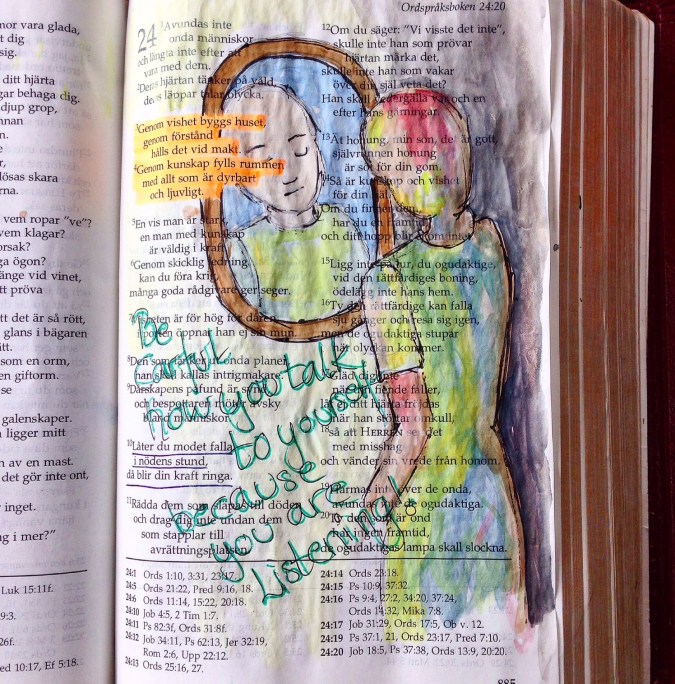 nor vara glada,
t dig
sig.
ditt hjärta
gar behaga dig.
djup grop,
nnan
n.
e,
lösas skara
rna.
vem ropar "ve"?
vem klagar?
orsak?
a ögon?
änge vid vinet,
tt pröva
tt det är så rött,
glans i bägaren
tt.
som en orm,
en giftorm.
se
galenskaper.
n ligger mitt
n av en mast.
det gör inte ont,
r inget.
g i mer?"
Luk 15:11f.
9:3.
26f.
ed 10:17, Ef 5:18.
Ordspråksboken 24:20
24
1Avundas inte
onda människor
och längta inte efter att
vara med dem.
2Deras hjärtan tänker på våld,
deras läppar talar olycka.
3Genom vishet byggs huset,
genom förstånd
hålls det vid makt.
4Genom kunskap fylls rummen
med allt som är dyrbart
och ljuvligt.
5En vis man är stark,
en man med kunskap
är väldig i kraft.
6Genom skicklig ledning
kan du föra krig,
många goda rådgivare ger seger.
7Visheten är för hög för dåren,
i porten öppnar han ej sin mun.
8Den som tänker ut onda planer,
han skall kallas intrigmakare.
9Dårskapens påfund är synd,
och bespottaren möter avsky
bland människor.
10Låter du modet falla
i nödens stund,
då blir din kraft ringa.
11Rädda dem som släpas till döden
och drag dig inte undan dem
som stapplar till
avrättningsplatsen.
12Om du säger: "Vi visste det inte",
skulle inte han som prövar
hjärtan märka det,
skulle inte han som vakar
över din själ veta det?
Han skall vedergälla var och en
efter hans gärningar.
13Ät honung, min son, det är gott,
självrunnen honung
är söt för din gom.
14Så är kunskap och vishet
för din själ.
Om du finner dem,
har du en framtid
och ditt hopp blir ej om intet.
15Ligg inte på lur, du ogudaktige,
vid den rättfärdiges boning,
ödelägg inte hans hem.
16Ty den rättfärdige kan falla
sju gånger och resa sig igen,
men de ogudaktiga stupar
när olyckan kommer.
17Gläd dig inte
när din fiende faller,
låt ej ditt hjärta fröjdas
när han störtar omkull,
18så att HERREN ser det
med misshag
och vänder sin vrede från honom.
19Harmas inte över de onda,
avundas inte de ogudaktiga.
20Ty den som är ond
har ingen framtid,
de ogudaktigas lampa skall slockna.
Be
careful
how you talk
to yourself
because
you are
Listening!
24:1 Ords 1:10, 3:31, 23:17.
24:5 Ords 21:22, Pred 9:16, 18.
24:6 Ords 11:14, 15:22, 20:18.
24:10 Job 4:5, 2 Tim 1:7.
24:11 Ps 82:3f, Ords 31:8f.
24:12 Job 34:11, Ps 62:13, Jer 32:19,
Rom 2:6, Upp 22:12.
24:13 Ords 25:16, 27.
24:14 Ords 23:18.
24:15 Ps 10:9, 37:32
24:16 Ps 9:4, 27:2, 34:20, 37:24,
Ords 14:32, Mika 7:8.
24:17 Job 31:29, Ords 17:5, Ob v. 12.
24:19 Ps 37:1, 21, Ords 23:17, Pred 7:10.
24:20 Job 18:5, Ps 37:38, Ords 13:9, 20:20.
885